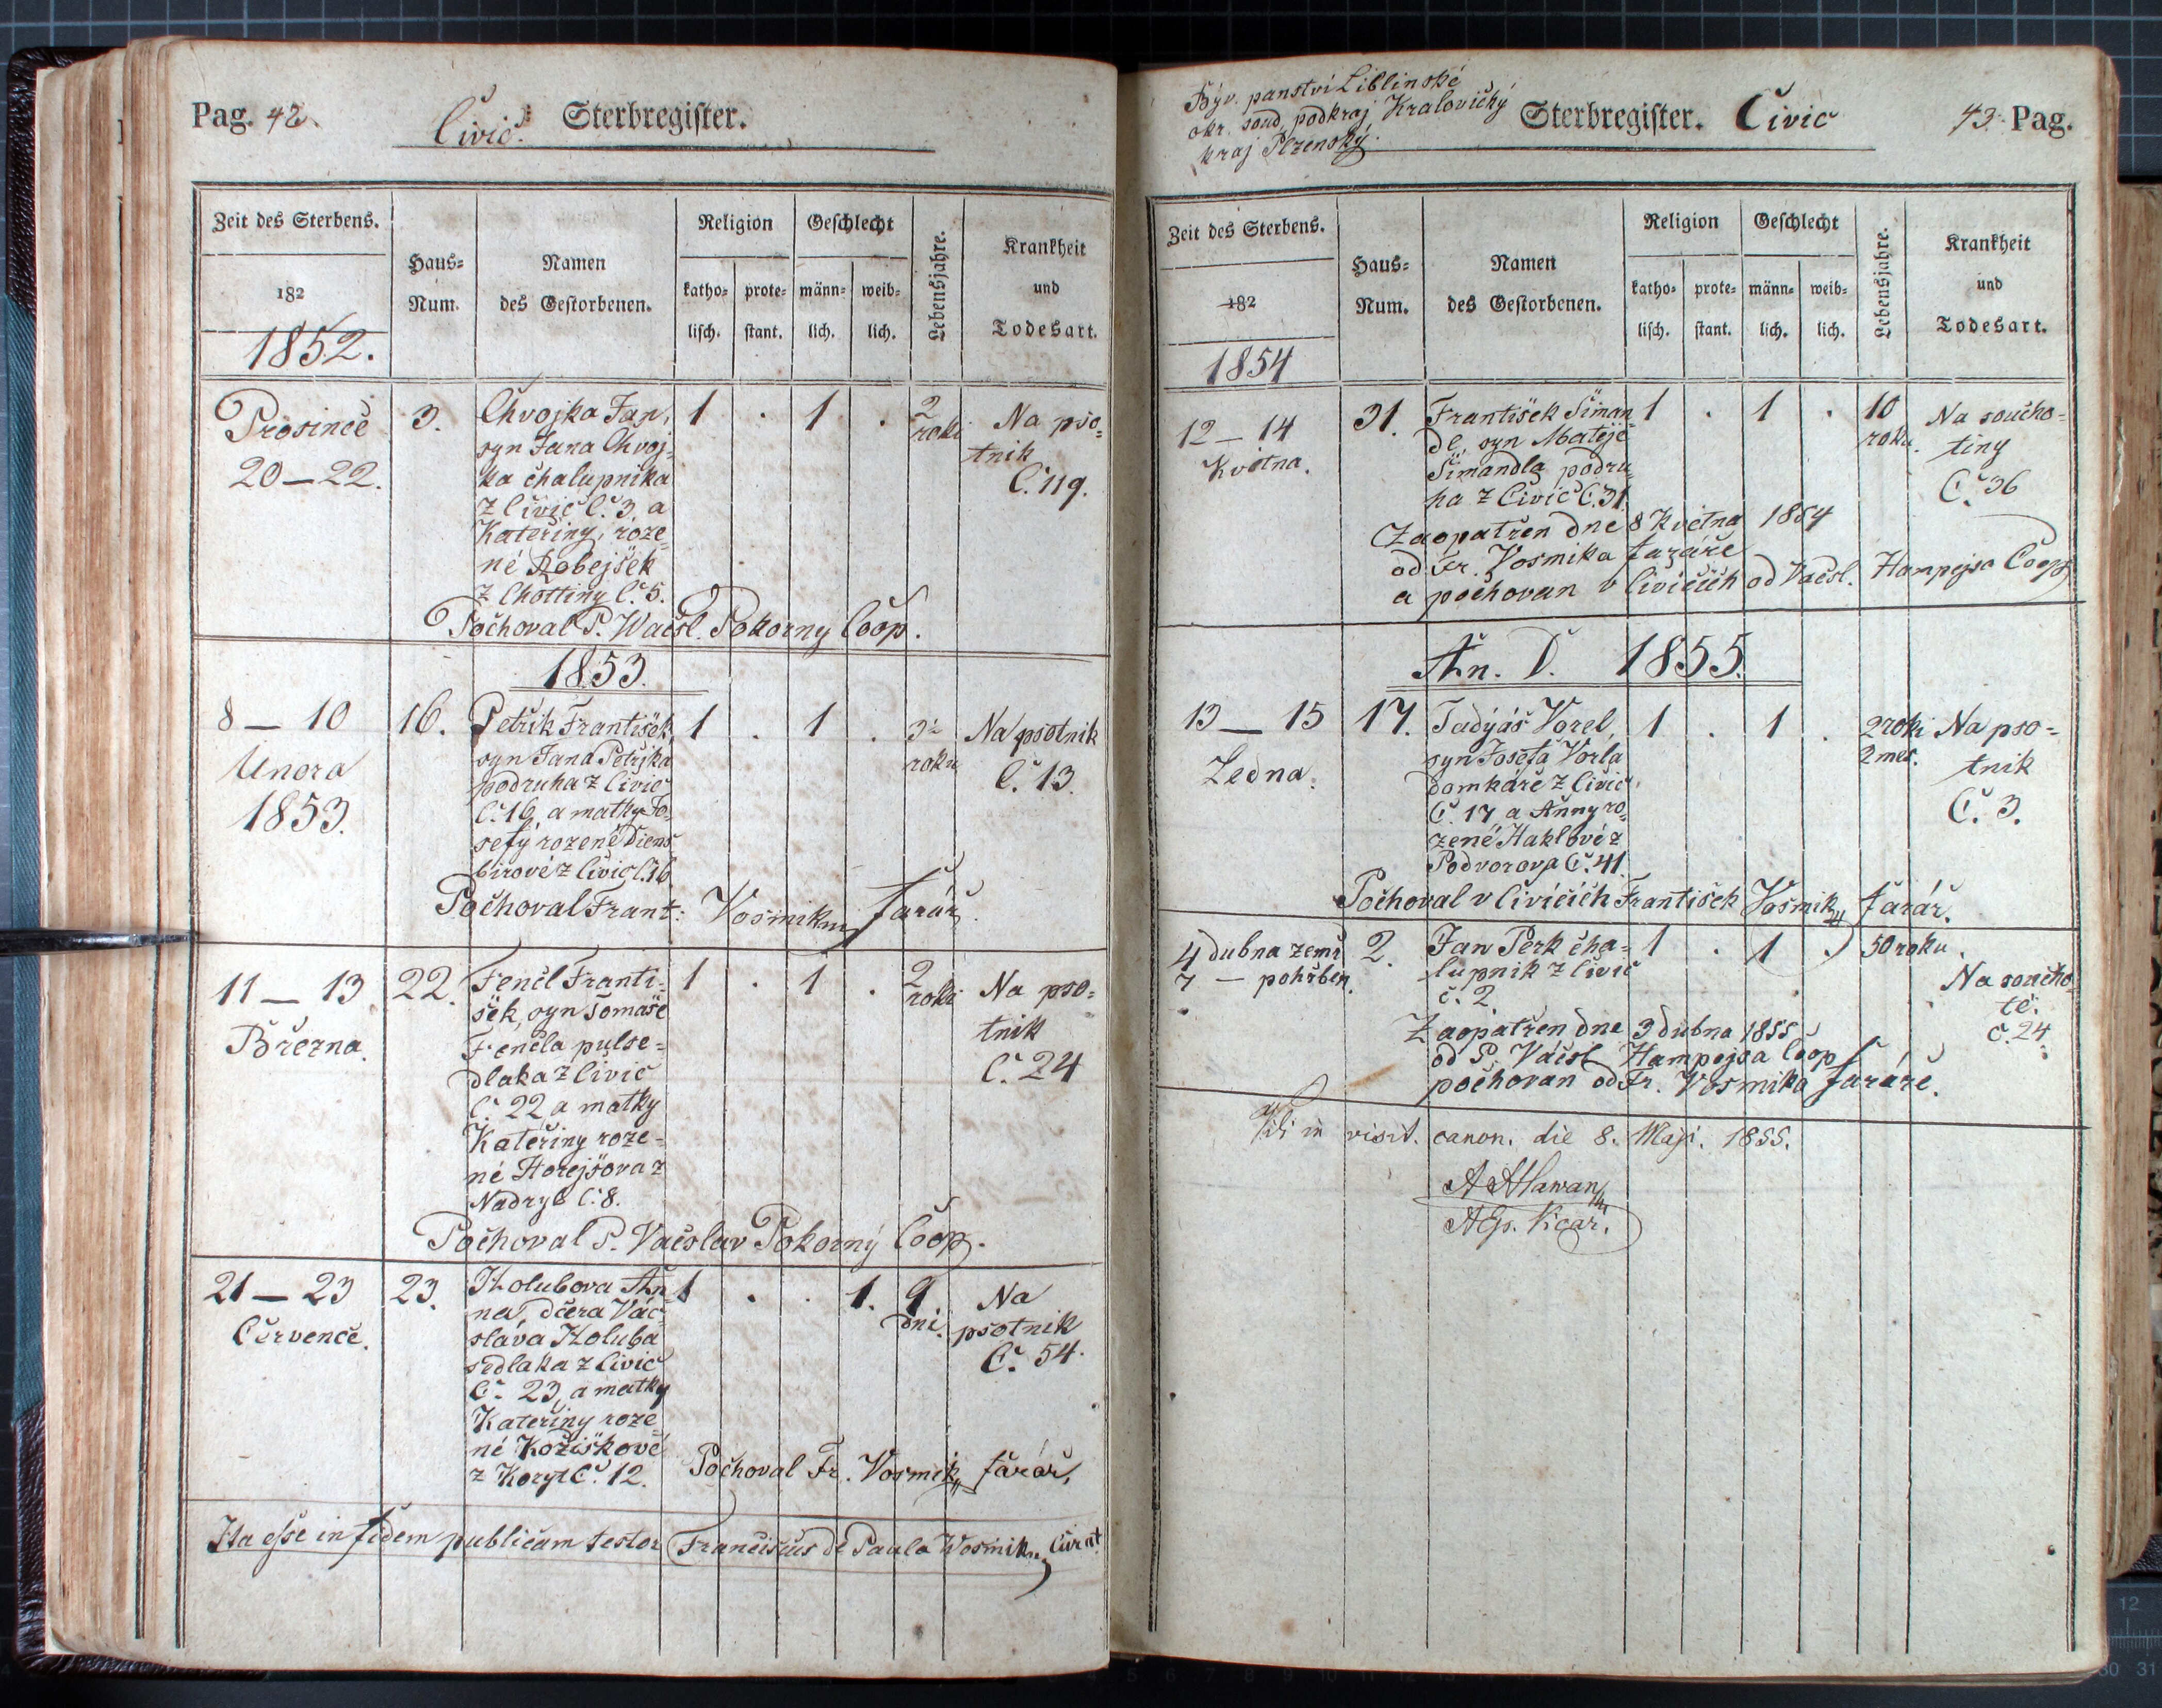 Pag. 42.
Civic. Sterbregister.
Zeit des Sterbens.
182
1852.
Haus-
Num.
Namen
des Gestorbenen.
Religion
katho-
lisch.
prote-
stant.
Geschlecht
männ-
lich.
weib-
lich.
Lebensjahre.
Krankheit
und
Todesart.
Prosince
20-22.
3.
Chvojka Jan,
syn Jana Chvoj-
ka chalupnika
z Civic Č. 3, a
Kateřiny, roze-
né
z Chottiny Č. 5.
1 . 1 .
2
roki
Na pso-
tnik
Č. 119.
Pochoval P. Wacsl. Pokorny Coop.
1853.
8-10
Unora
1853.
16.
Petřik František,
syn Jana Petřika
podruha z Civic
Č. 16, a matky Jo-
sefy rozené Diens-
birové z Civic Č. 16
1 . 1 .
roku
Na psotnik
Č. 13.
Pochoval Frant: Vosmik farář.
11-13
Března.
22.
Fencl Franti-
šek, syn Tomaše
Fencla pulse-
dlaka z Civic
Č. 22 a matky
Kateřiny roze-
né Horejšova z
Nadryb Č. 8.
1 . 1 .
2
roki
Na pso-
tnik
Č. 24
Pochoval P. Vacslav Pokorný Coop.
21-23
Července.
23.
Holubova An-
na, dcera Vác-
slava Holuba
sedlaka z Civic
Č. 23, a matky
Kateřiny roze-
né Kožiškové
z Koryt Č. 12.
1 . . 1.
9.
dni.
Na
psotnik
Č. 54.
Pochoval Fr. Vosmik farář.
Ita esse in fidem publicam testor Franciscus de Paula Wosmik, Curat.
Býv. panství Liblinské
okr. soud, podkraj Kralovický
kraj Plzenský.
Sterbregister. Civic
43. Pag.
Zeit des Sterbens.
182
1854
Haus-
Num.
Namen
des Gestorbenen.
Religion
katho-
lisch.
prote-
stant.
Geschlecht
männ-
lich.
weib-
lich.
Lebensjahre.
Krankheit
und
Todesart.
12-14
Května.
31.
František Šiman-
dl, syn Matěje
Šimandla podru-
ha z Civic Č. 31.
1 . 1 .
10
roku.
Na soucho-
tiny
Č. 36
Zaopatřen dne 8 Května 1854
od Fr. Vosmika faráře
a pochovan v Civicích od Vácsl. Hampejsa Coop.
An. D. 1855.
13-15
Ledna.
17.
Tadýáš Vorel,
syn Josefa Vorla
domkáře z Civic
Č. 17, a Anny ro-
zené Haklové z
Podvorova Č. 41.
1 . 1 .
2 roki
2 měs.
Na pso-
tnik
Č. 3.
Pochoval v Civicích František Vosmik farář.
4 dubna zemř.
7 - pohřben.
2.
Jan Perk cha-
lupnik z Civic
č. 2
1 . 1 .
50 roku.
Na soucho-
tě.
č. 24.
Zaopatřen dne 3 dubna 1855
od P. Vácsl. Hampejsa Coop
pochován od Fr. Vosmika faráře.
Vidi in visit. canon. die 8. Maji. 1855.
Vicar.